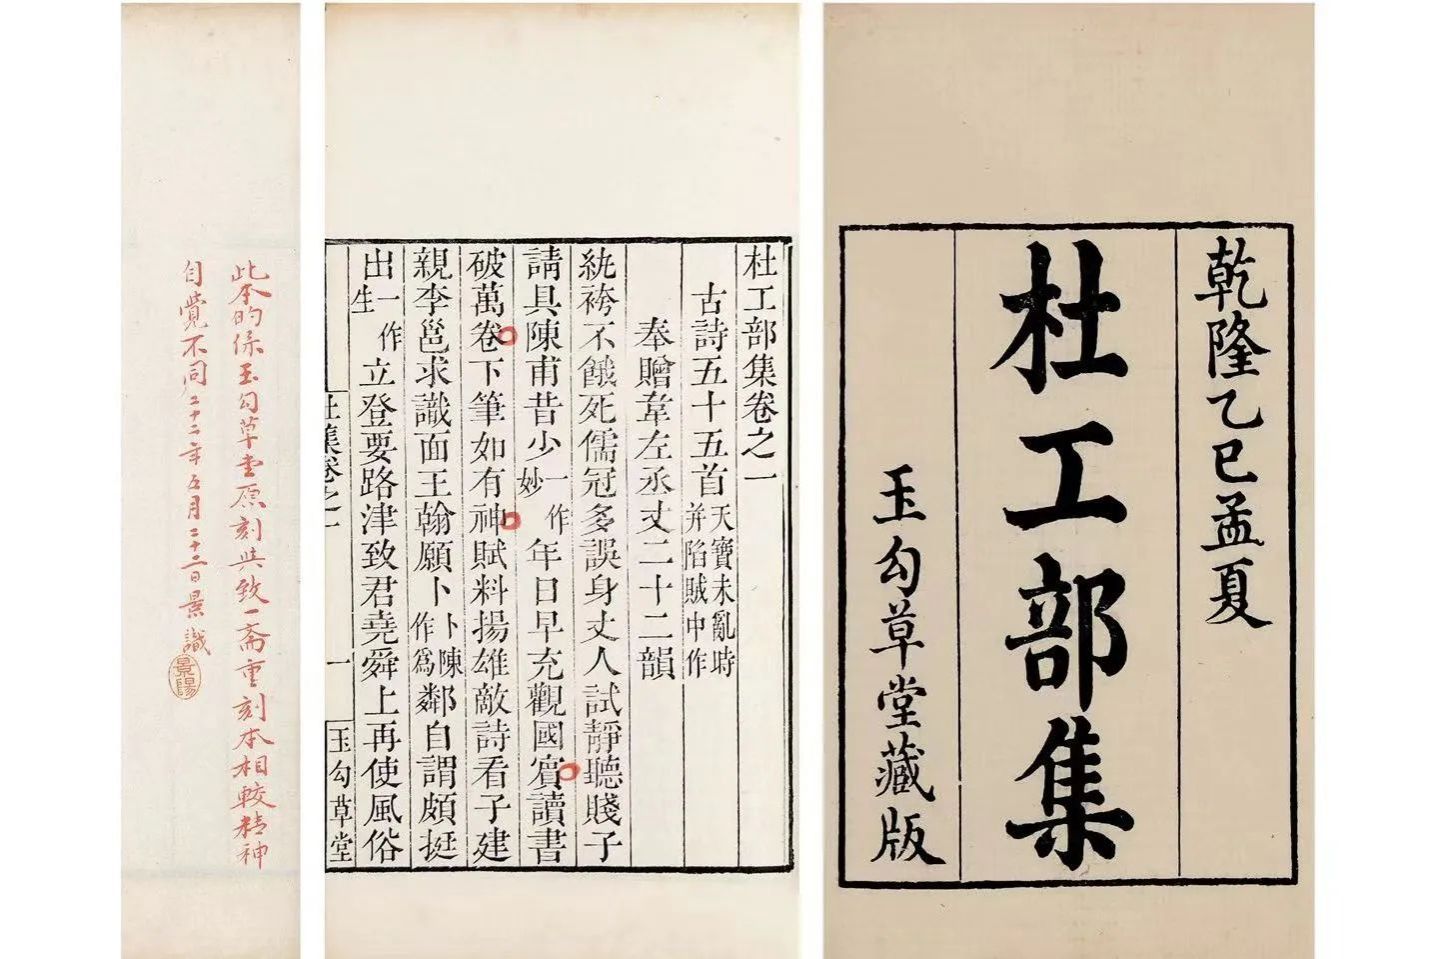 乾隆乙巳孟夏
杜工部集
玉勾草堂藏版
杜工部集卷之一
古詩五十五首天寶未亂時并陷賊中作
奉贈韋左丞丈二十二韻
紈袴不餓死儒冠多誤身丈人試靜聽賤子
請具陳甫昔少一作妙年日早充觀國賓讀書
破萬卷下筆如有神賦料揚雄敵詩看子建
親李邕求識面王翰願卜卜陳作為鄰自謂頗挺
出一作生立登要路津致君堯舜上再使風俗
杜集卷之一 一 玉勾草堂
此本的係玉勾草堂原刻與致一斋重刻本相較精神
自覺不同二十二年五月二十二日景識